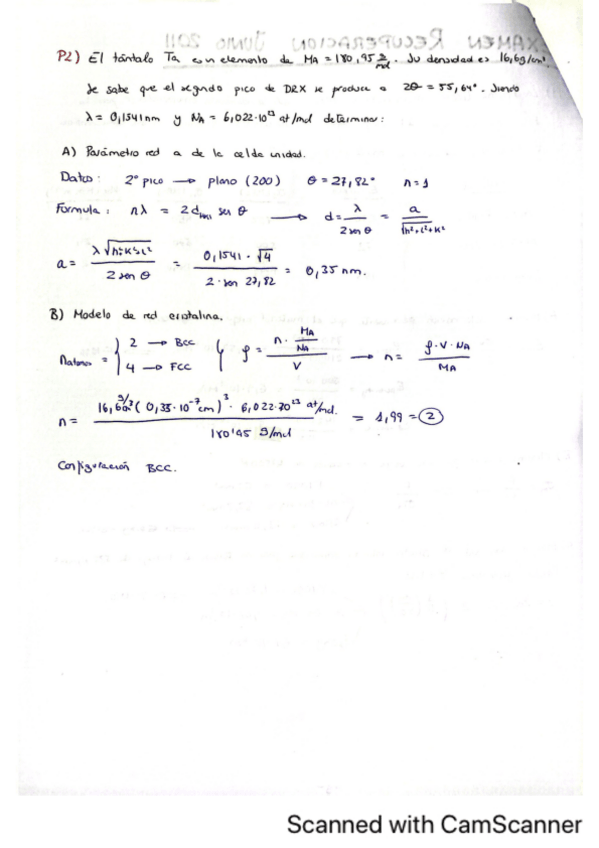 EXAMEN RECUPERACION JUNIO 2011
P2) El tántalo Ta es un elemento de MA = 180,95 g/mol. Su densidad es 16,6 g/cm³.
Se sabe que el segundo pico de DRX se produce a 2θ = 55,64°. Siendo
λ = 0,1541 nm y NA = 6,022·10²³ at/mol determinar:
A) Parámetro red a de la celda unidad.
Datos: 2º pico → plano (200) θ = 27,82° n = 1
Fórmula: nλ = 2 dhkl sen θ → d = λ / 2 sen θ = a / √h²+l²+k²
a = λ √h²+k²+l² / 2 sen θ = 0,1541 · √4 / 2 · sen 27,82 = 0,35 nm.
B) Modelo de red cristalina.
Nátomos = { 2 → BCC
4 → FCC { ρ = n · MA/NA / V → n = ρ·V·NA / MA
n = 16,6 g/cm³ (0,33·10⁻⁷ cm)³ · 6,022·10²³ at/mol. / 180'95 g/mol = 1,99 = 2
Configuración BCC.
Scanned with CamScanner